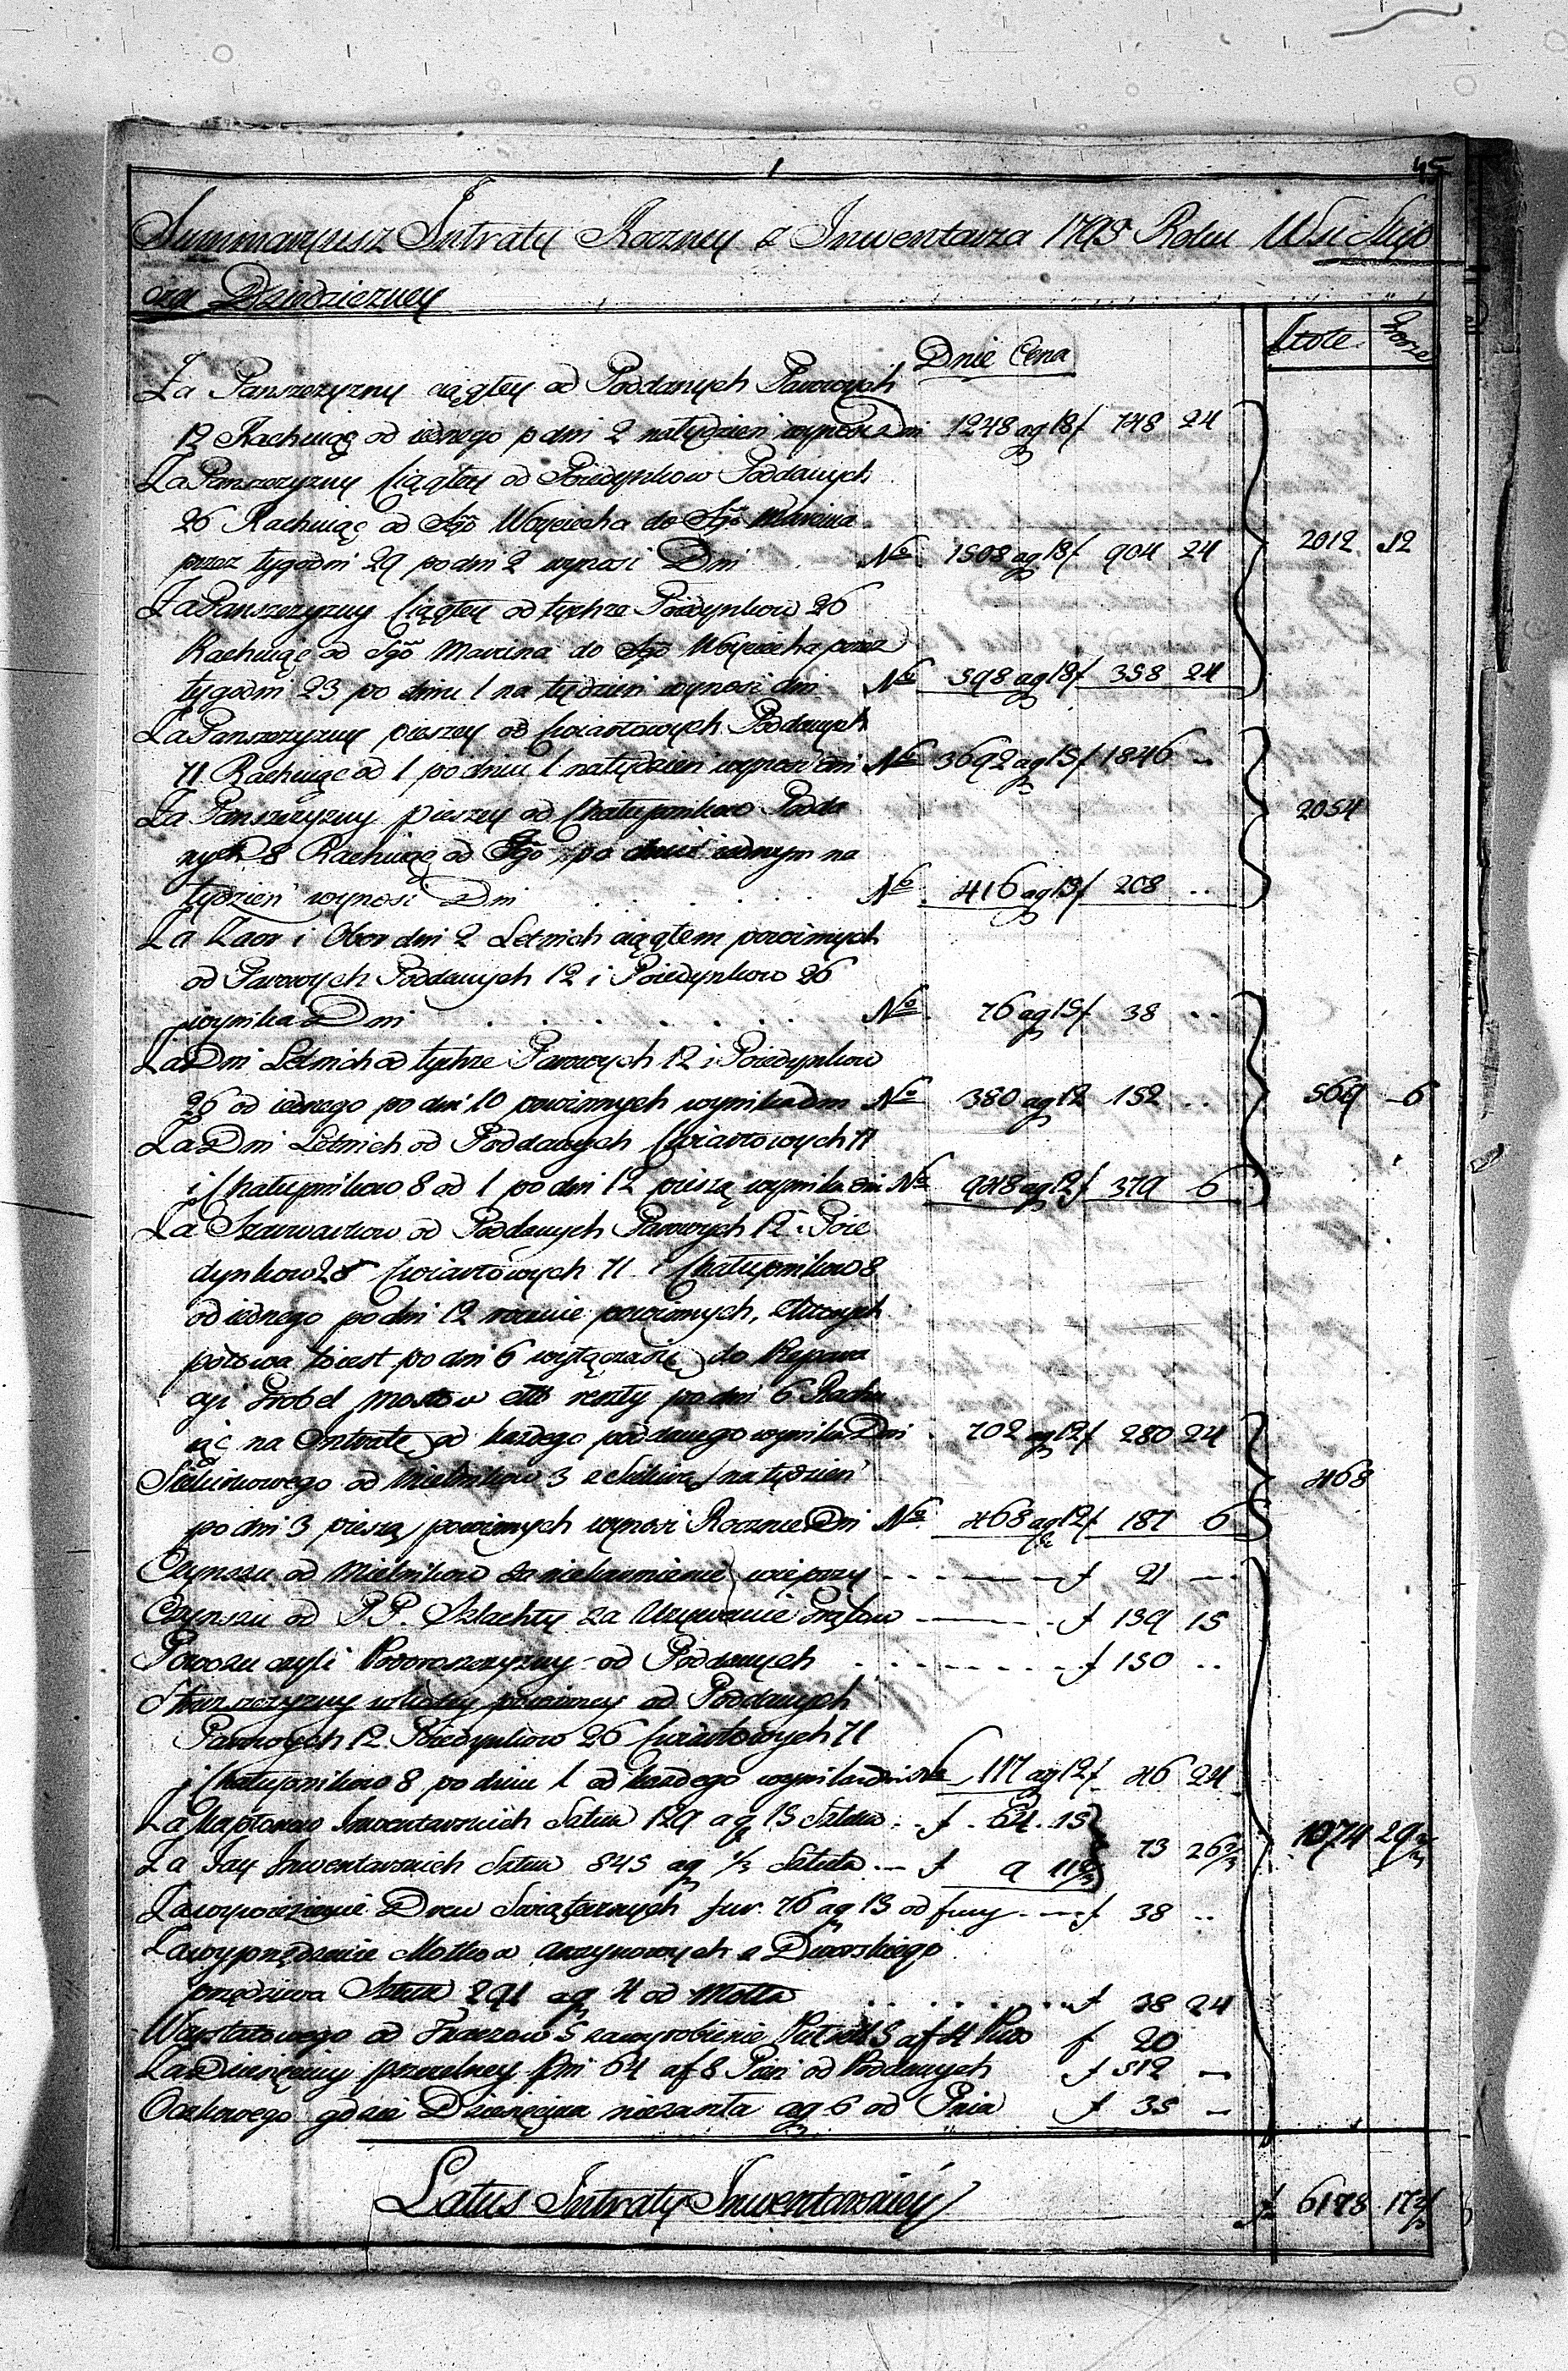 45
Summaryusz Intraty Roczney z Inwentarza 1795 Roku Wsi
Dziedziczney
Złote Grosze
Dnie Cena
Za Panszczyzny ciągłey od Poddanych Parowych
12 Rachuiąc od iednego po dni 2 na tydzień wynosi Dni 1248 ag 18 f 748 24
Za Panszczyzny Ciągłey od Poiedynkow Poddanych
26 Rachuiąc od Sgo Woyciecha do Sgo Marcina
przez tygodni 29 po dni 2 wynosi Dni No 1508 ag 18 f 904 24 2012 12
Za Panszczyzny Ciągłey od tychże Poiedynkow 26
Rachuiąc od Sgo Marcina do Sgo Woyciecha przez
tygodni 23 po dniu 1 na tydzień wynosi dni No 598 ag 18 f 358 24
Za Panszczyzny pieszey od Cwiartowych Poddanych
71 Rachuiąc od 1 po dniu 1 na tydzień wynosi dni No 3692 ag 15 f 1846 -
Za Panszczyzny pieszey od Chałupnikow Podda 2054
nych 8 Rachuiąc od Sgo po dniu iednym na
tydzień wynosi Dni No 416 ag 15 f 208 ..
Za Zaor i Obor dni 2 Letnich ciągłem powinnych
od Parowych Poddanych 12 i Poiedynkow 26
wynika Dni No 76 ag 15 f 38 ..
Za Dni Letnich od tychże Parowych 12 i Poiedynkow
26 od iednego po dni 10 powinnych wynika dni No 380 ag 12 152 .. 569 6
Za Dni Letnich od Poddanych Cwiartowych 71
i Chałupnikow 8 od 1 po dni 12 pieszą wynika dni No 948 ag 12 f 379 6
Za Szarwarkow od Poddanych Parowych 12 Poie
dynkow 26 Cwiartowych 71 i Chałupnikow 8
od iednego po dni 12 rocznie powinnych, ktorych
połowa to iest po dni 6 wyłącza się do Repara
cyi Grobel mostow etc reszty po dni 6 Rachu
iąc na Intratę od każdego poddanego wynika Dni 702 ag 12 f 280 24
od Mielnikow 3 z na tydzień 468
po dni 3 pieszą powinnych wynosi Rocznie Dni No 468 ag 12 f 187 6
Czynszu od Mielnikow za niekarmienie wieprzy f 21 -
Czynszu od P.P. Szlachty za Używanie Grątow f 139 15
Powozu czyli Podoroszczyzny od Poddanych f 150 ..
Stroszczyzny z koley powinney od Poddanych
Parowych 12 Poiedynkow 26 Cwiartowych 71
i Chałupnikow 8 po dniu 1 od każdego wynika dni No 117 ag 12 f 46 24
Za Kapłonow Inwentarskich Sztuk 129 ag 15 Sztuka f 64 15
73 26 2/3 1074 29 2/3
Za Jay Inwentarskich Sztuk 845 ag 1/3 Sztuka f 9 11 2/3
Za wywiezienie Drew Swiątecznych fur 76 ag 15 od fury f 38 ..
Za wyprzędzenie Motkow arzynowych z Dworskiego
przędziwa Sztuk 291 ag 4 od Motka f 38 24
Warstatowego od Tkaczow 5 za wyrobienie f 20
Za Dziesięciny pszczelney Pni 64 af 8 Pień od Poddanych f 512 -
Oczkowego gdzie Dziesięcina niezaszła ag 6 od Pnia f 35 -
Latus Intraty Inwentarskiey f 6178 17 2/3